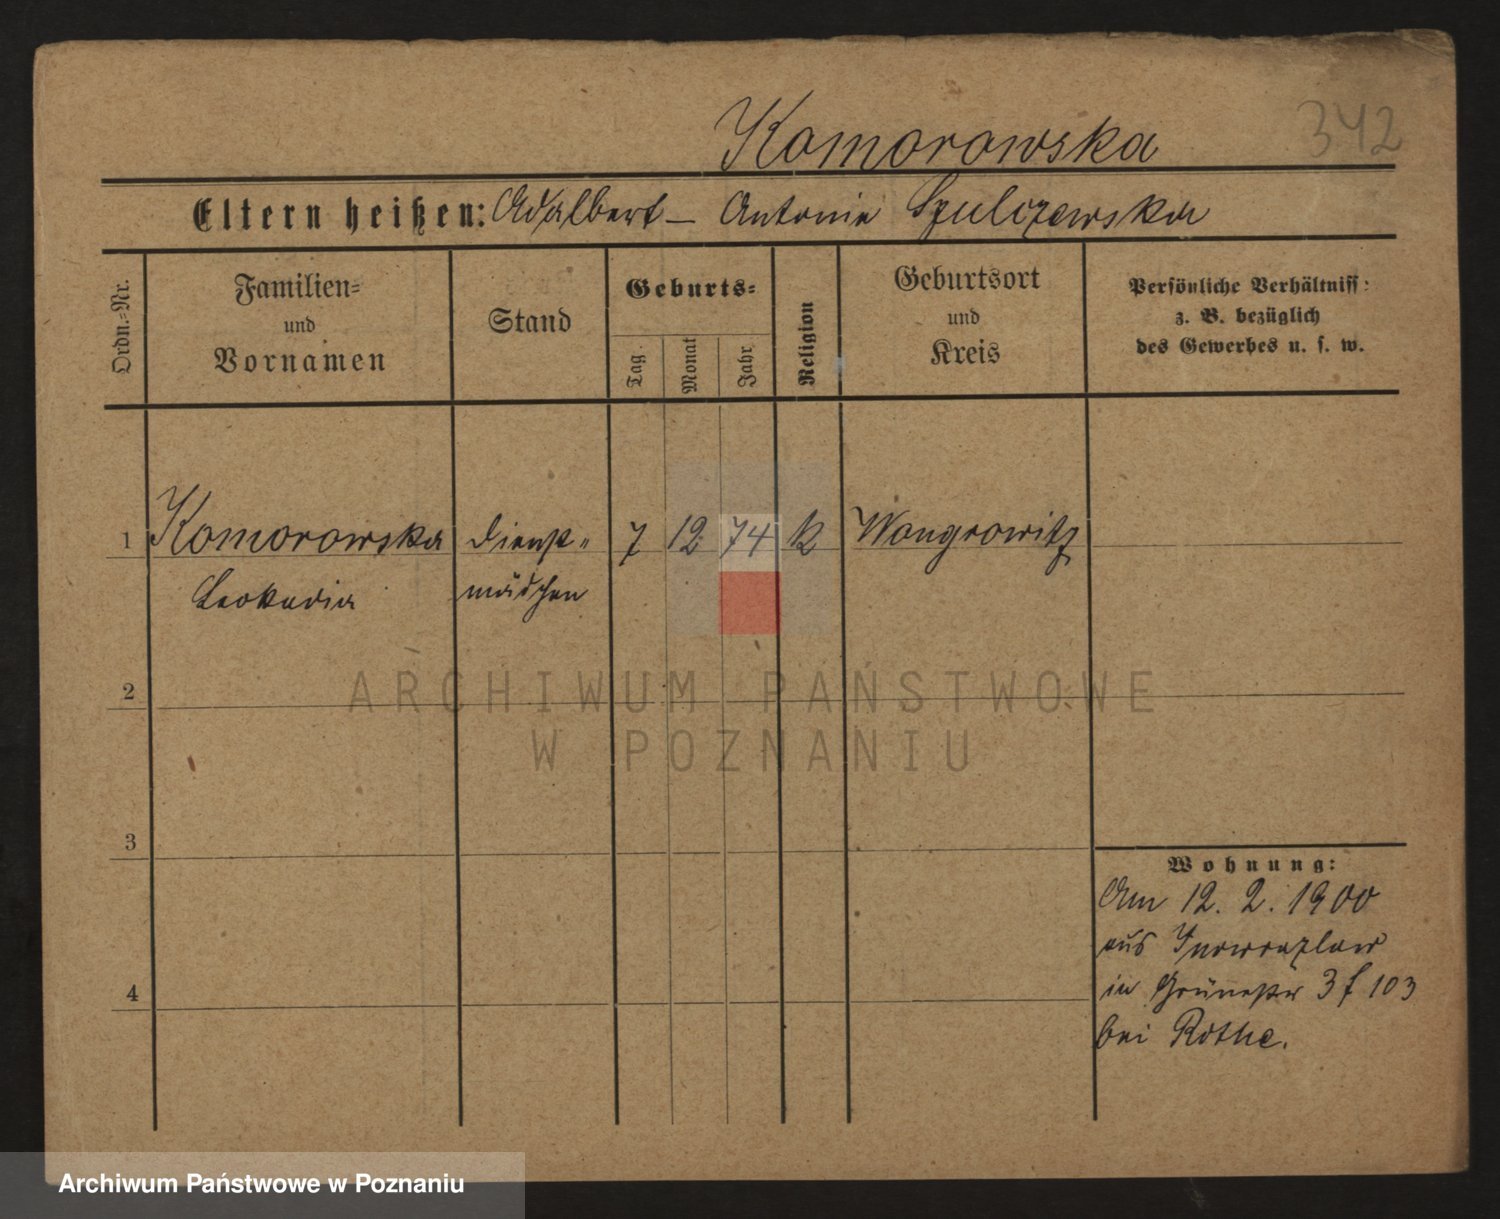 342
Komorowska
Eltern heißen: Adalbert – Antonie Szulczewska
Ordn.-Nr.
Familien-
und
Vornamen
Stand
Geburts-
Tag.
Monat
Jahr
Religion
Geburtsort
und
Kreis
Persönliche Verhältniss:
z. B. bezüglich
des Gewerbes u. s. w.
1 Komorowska Dienst- 7 12 74 k Wongrowitz
Leokadia mädchen
2
ARCHIWUM PAŃSTWOWE
W POZNANIU
3
Wohnung:
Am 12. 2. 1900
aus Inowrazlaw
in 3 f 103
4
bei Rothe.
Archiwum Państwowe w Poznaniu